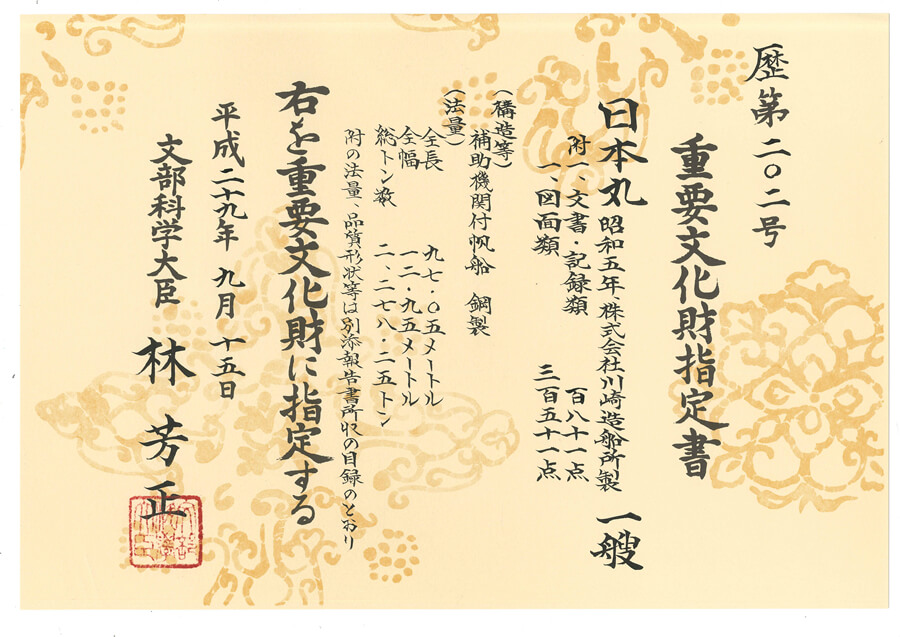 歴第二〇二号
重要文化財指定書
日本丸 昭和五年、株式会社川崎造船所製 一艘
附一、文書・記録類 百八十一点
一、図面類 三百五十一点
(構造等)
補助機関付帆船 鋼製
(法量)
全長 九七・〇五メートル
全幅 一二・九五メートル
総トン数 二、二七八・二五トン
附の法量、品質形状等は別添報告書所収の目録のとおり
右を重要文化財に指定する
平成二十九年 九月 十五日
文部科学大臣 林 芳正